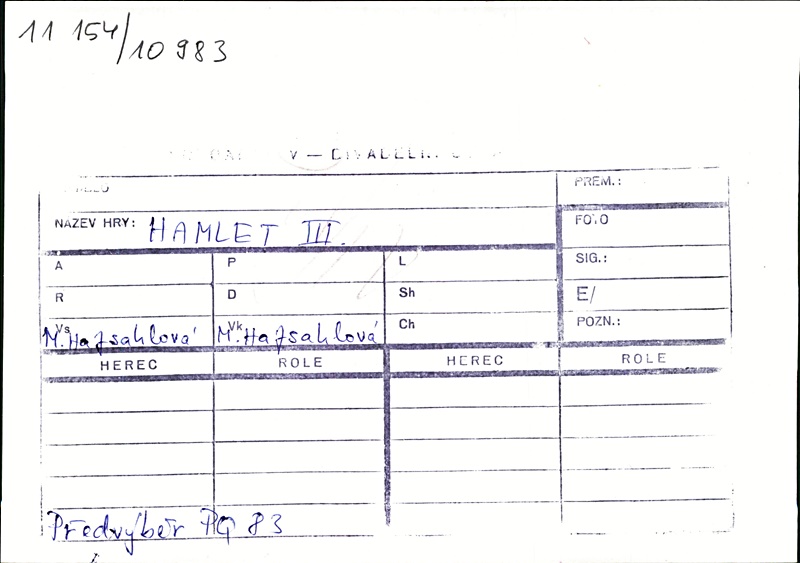 11 154/10 983
V — DIVADELN
PREM.:
NÁZEV HRY: HAMLET III.
FOTO
A P L SIG.:
R D Sh E/
Vs M. Hajsahlová Vk M. Hajsahlová Ch POZN.:
HEREC ROLE HEREC ROLE
Předvýběr PQ 83